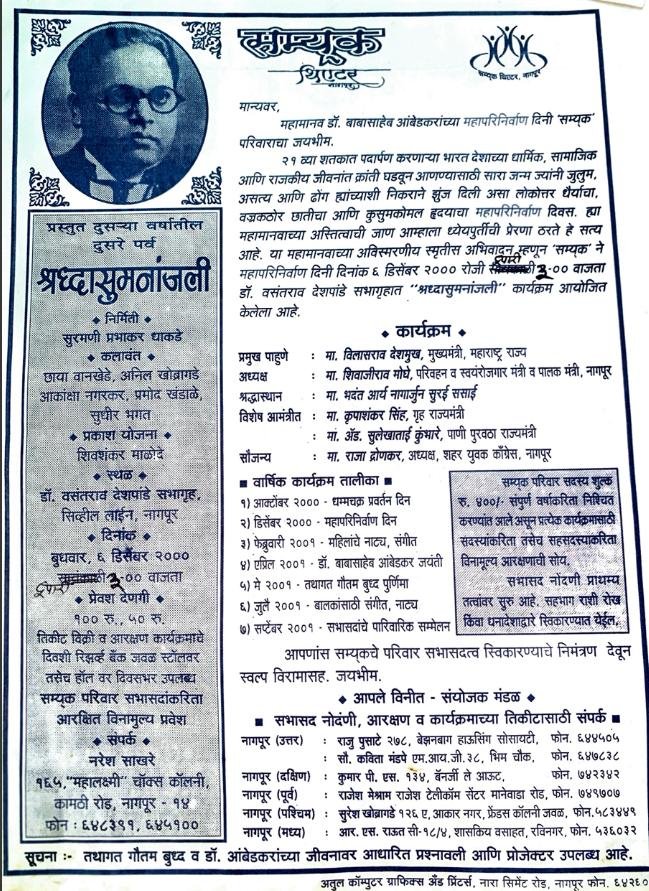 सम्यक
थिएटर
नागपूर
सम्यक थिएटर, नागपूर
मान्यवर,
महामानव डॉ. बाबासाहेब आंबेडकरांच्या महापरिनिर्वाण दिनी 'सम्यक'
परिवाराचा जयभीम.
२१ व्या शतकात पदार्पण करणाऱ्या भारत देशाच्या धार्मिक, सामाजिक
आणि राजकीय जीवनांत क्रांती घडवून आणण्यासाठी सारा जन्म ज्यांनी जुलुम,
असत्य आणि ढोंग ह्यांच्याशी निकराने झुंज दिली असा लोकोत्तर धैर्याचा,
वज्रकठोर छातीचा आणि कुसुमकोमल हृदयाचा महापरिनिर्वाण दिवस. ह्या
महामानवाच्या अस्तित्वाची जाण आम्हाला ध्येयपुर्तीची प्रेरणा ठरते हे सत्य
आहे. या महामानवाच्या अविस्मरणीय स्मृतीस अभिवादन म्हणून 'सम्यक' ने
महापरिनिर्वाण दिनी दिनांक ६ डिसेंबर २००० रोजी दुपारी ३.०० वाजता
डॉ. वसंतराव देशपांडे सभागृहात "श्रध्दासुमनांजली" कार्यक्रम आयोजित
केलेला आहे.
प्रस्तुत दुसऱ्या वर्षातील
दुसरे पर्व
श्रध्दासुमनांजली
◆ निर्मिती ◆
सुरमणी प्रभाकर धाकडे
◆ कलावंत ◆
छाया वानखेडे, अनिल खोब्रागडे
आकांक्षा नगरकर, प्रमोद खंडाळे,
सुधीर भगत
◆ प्रकाश योजना ◆
शिवशंकर माळोदे
◆ स्थळ ◆
डॉ. वसंतराव देशपांडे सभागृह,
सिव्हील लाईन, नागपूर
◆ दिनांक ◆
बुधवार, ६ डिसेंबर २०००
दुपारी ३.०० वाजता
◆ प्रवेश देणगी ◆
१०० रु., ५० रु.
तिकीट विक्री व आरक्षण कार्यक्रमाचे
दिवशी रिझर्व्ह बँक जवळ स्टॉलवर
तसेच हॉल वर दिवसभर उपलब्ध
सम्यक परिवार सभासदांकरिता
आरक्षित विनामुल्य प्रवेश
◆ संपर्क ◆
नरेश साखरे
१६५, "महालक्ष्मी" चॉक्स कॉलनी,
कामठी रोड, नागपूर - १४
फोन : ६४८३९१, ६४५१००
◆ कार्यक्रम ◆
प्रमुख पाहुणे : मा. विलासराव देशमुख, मुख्यमंत्री, महाराष्ट्र राज्य
अध्यक्ष : मा. शिवाजीराव मोघे, परिवहन व स्वयंरोजगार मंत्री व पालक मंत्री, नागपूर
श्रद्धास्थान : मा. भदंत आर्य नागार्जुन सुरई ससाई
विशेष आमंत्रीत : मा. कृपाशंकर सिंह, गृह राज्यमंत्री
: मां. ॲड. सुलेखाताई कुंभारे, पाणी पुरवठा राज्यमंत्री
सौजन्य : मा. राजा द्रोणकर, अध्यक्ष, शहर युवक काँग्रेस, नागपूर
■ वार्षिक कार्यक्रम तालीका ■
१) आक्टोंबर २००० - धम्मचक्र प्रवर्तन दिन
२) डिसेंबर २००० - महापरिनिर्वाण दिन
३) फेब्रुवारी २००१ - महिलांचे नाट्य, संगीत
४) एप्रिल २००१ - डॉ. बाबासाहेब आंबेडकर जयंती
५) मे २००१ - तथागत गौतम बुध्द पुर्णिमा
६) जुलै २००१ - बालकांसाठी संगीत, नाट्य
७) सप्टेंबर २००१ - सभासदांचे पारिवारिक सम्मेलन
सम्यक परिवार सदस्य शुल्क
रु. ४००/- संपुर्ण वर्षाकरिता निश्चित
करण्यांत आले असून प्रत्येक कार्यक्रमासाठी
सदस्यांकरिता तसेच सहसदस्याकरिता
विनामूल्य आरक्षणाची सोय.
सभासद नोदणी प्राथम्य
तत्वांवर सुरु आहे. सहभाग राशी रोख
किंवा धनादेशद्वारे स्विकारण्यात येईल.
आपणांस सम्यकचे परिवार सभासदत्व स्विकारण्याचे निमंत्रण देवून
स्वल्प विरामासह. जयभीम.
◆ आपले विनीत - संयोजक मंडळ ◆
■ सभासद नोदंणी, आरक्षण व कार्यक्रमाच्या तिकीटासाठी संपर्क ■
नागपूर (उत्तर) : राजु पुसाटे २७८, बेझनबाग हाऊसिंग सोसायटी, फोन. ६४४५०५
: सौ. कविता मंडपे एम.आय.जी.३८, भिम चौक, फोन. ६४७८३८
नागपूर (दक्षिण) : कुमार पी. एस. १३४, बॅनर्जी ले आऊट, फोन. ७४२३४२
नागपूर (पूर्व) : राजेश मेश्राम राजेश टेलीकॉम सेंटर मानेवाडा रोड, फोन. ७४९७०७
नागपूर (पश्चिम) : सुरेश खोब्रागडे १२६ ए, आकार नगर, फ्रेंडस कॉलनी जवळ, फोन.५८३४४९
नागपूर (मध्य) : आर. एस. राऊत सी-१८/४, शासकिय वसाहत, रविनगर, फोन. ५३६०३२
सूचना :- तथागत गौतम बुध्द व डॉ. आंबेडकरांच्या जीवनावर आधारित प्रश्नावली आणि प्रोजेक्टर उपलब्ध आहे.
अतुल कॉम्पुटर ग्राफिक्स अँड प्रिंटर्स, नारा सिमेंट रोड, नागपूर फोन. ६४२६०